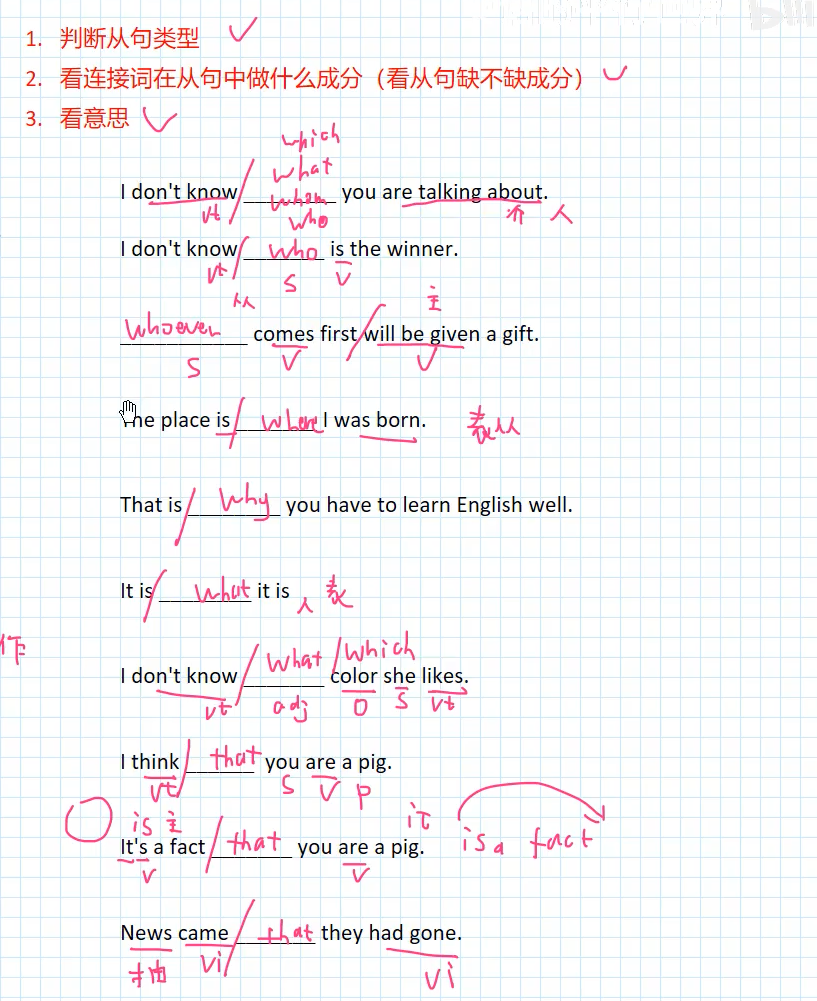 1. 判断从句类型
2. 看连接词在从句中做什么成分（看从句缺不缺成分）
3. 看意思
which
what
I don't know whom you are talking about.
vt who 介 人
I don't know who is the winner.
vt S V
从 主
Whoever comes first will be given a gift.
S V V
The place is where I was born. 表从
That is why you have to learn English well.
It is what it is 表
作
what / which
I don't know ________ color she likes.
vt adj O S vt
I think that you are a pig.
vt S V P
is 主 it
It's a fact that you are a pig. is a fact
V V
News came that they had gone.
抽 vi vi